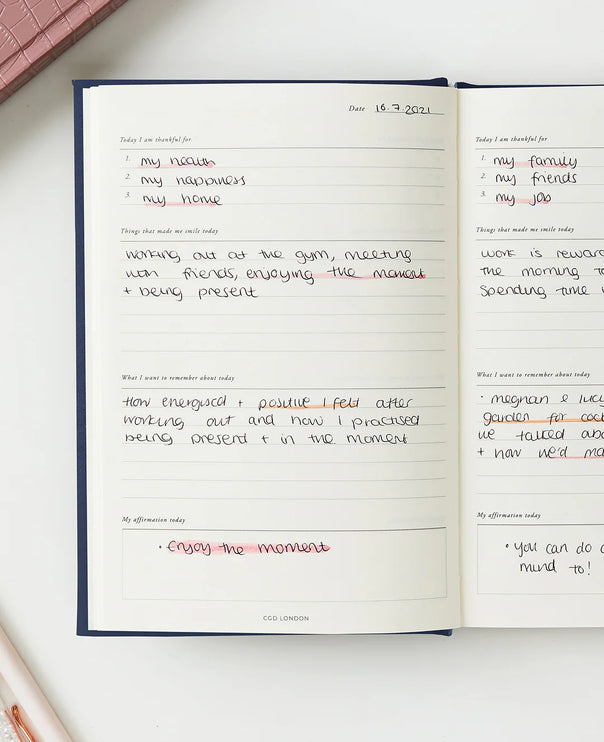 Date 16.7.2021
Today I am thankful for
1. my health
2. my happiness
3. my home
Things that made me smile today
working out at the gym, meeting
with friends, enjoying the moment
+ being present
What I want to remember about today
How energised + positive I felt after
working out and how I practised
being present + in the moment
My affirmation today
• Enjoy the moment
CGD LONDON
Today I am thankful for
1. my family
2. my friends
3. my job
Things that made me smile today
work is
the morning
Spending time
What I want to remember about today
• meghan & lucy
garden for
we talked
+ how we'd
My affirmation today
• you can do
mind to!